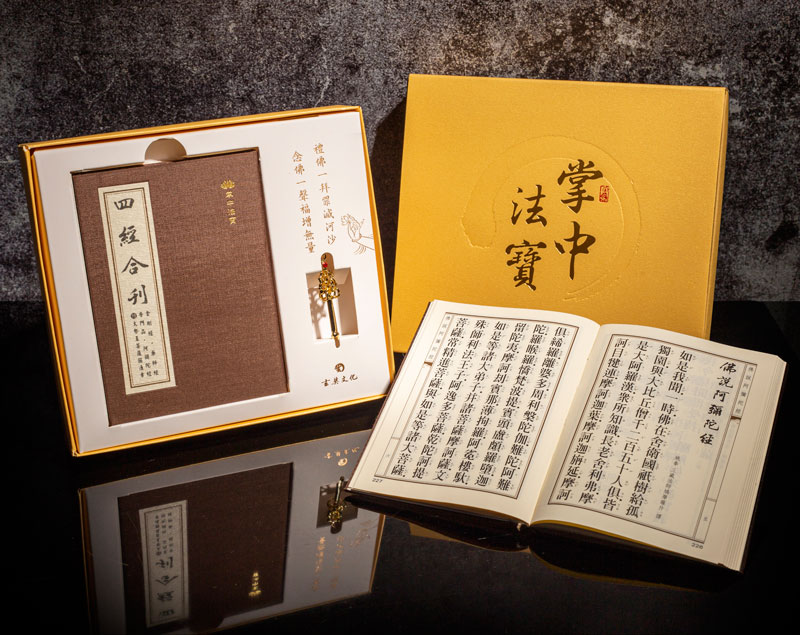 掌中
法寶
掌中法寶
四經合刊
金剛經 藥師經
普門品 阿彌陀經
禮佛一拜罪滅河沙
念佛一聲福增無量
玄奘文化
佛說阿彌陀經
如是我聞一時佛在舍衛國祇樹給孤
獨園與大比丘僧千二百五十人俱皆
是大阿羅漢眾所知識長老舍利弗摩
訶目犍連摩訶迦葉摩訶迦旃延摩訶
226
俱絺羅離婆多周利槃陀伽難陀阿難
陀羅睺羅憍梵波提賓頭盧頗羅墮迦
留陀夷摩訶劫賓那薄拘羅阿㝹樓馱
如是等諸大弟子并諸菩薩摩訶薩文
殊師利法王子阿逸多菩薩乾陀訶提
菩薩常精進菩薩與如是等諸大菩薩
227